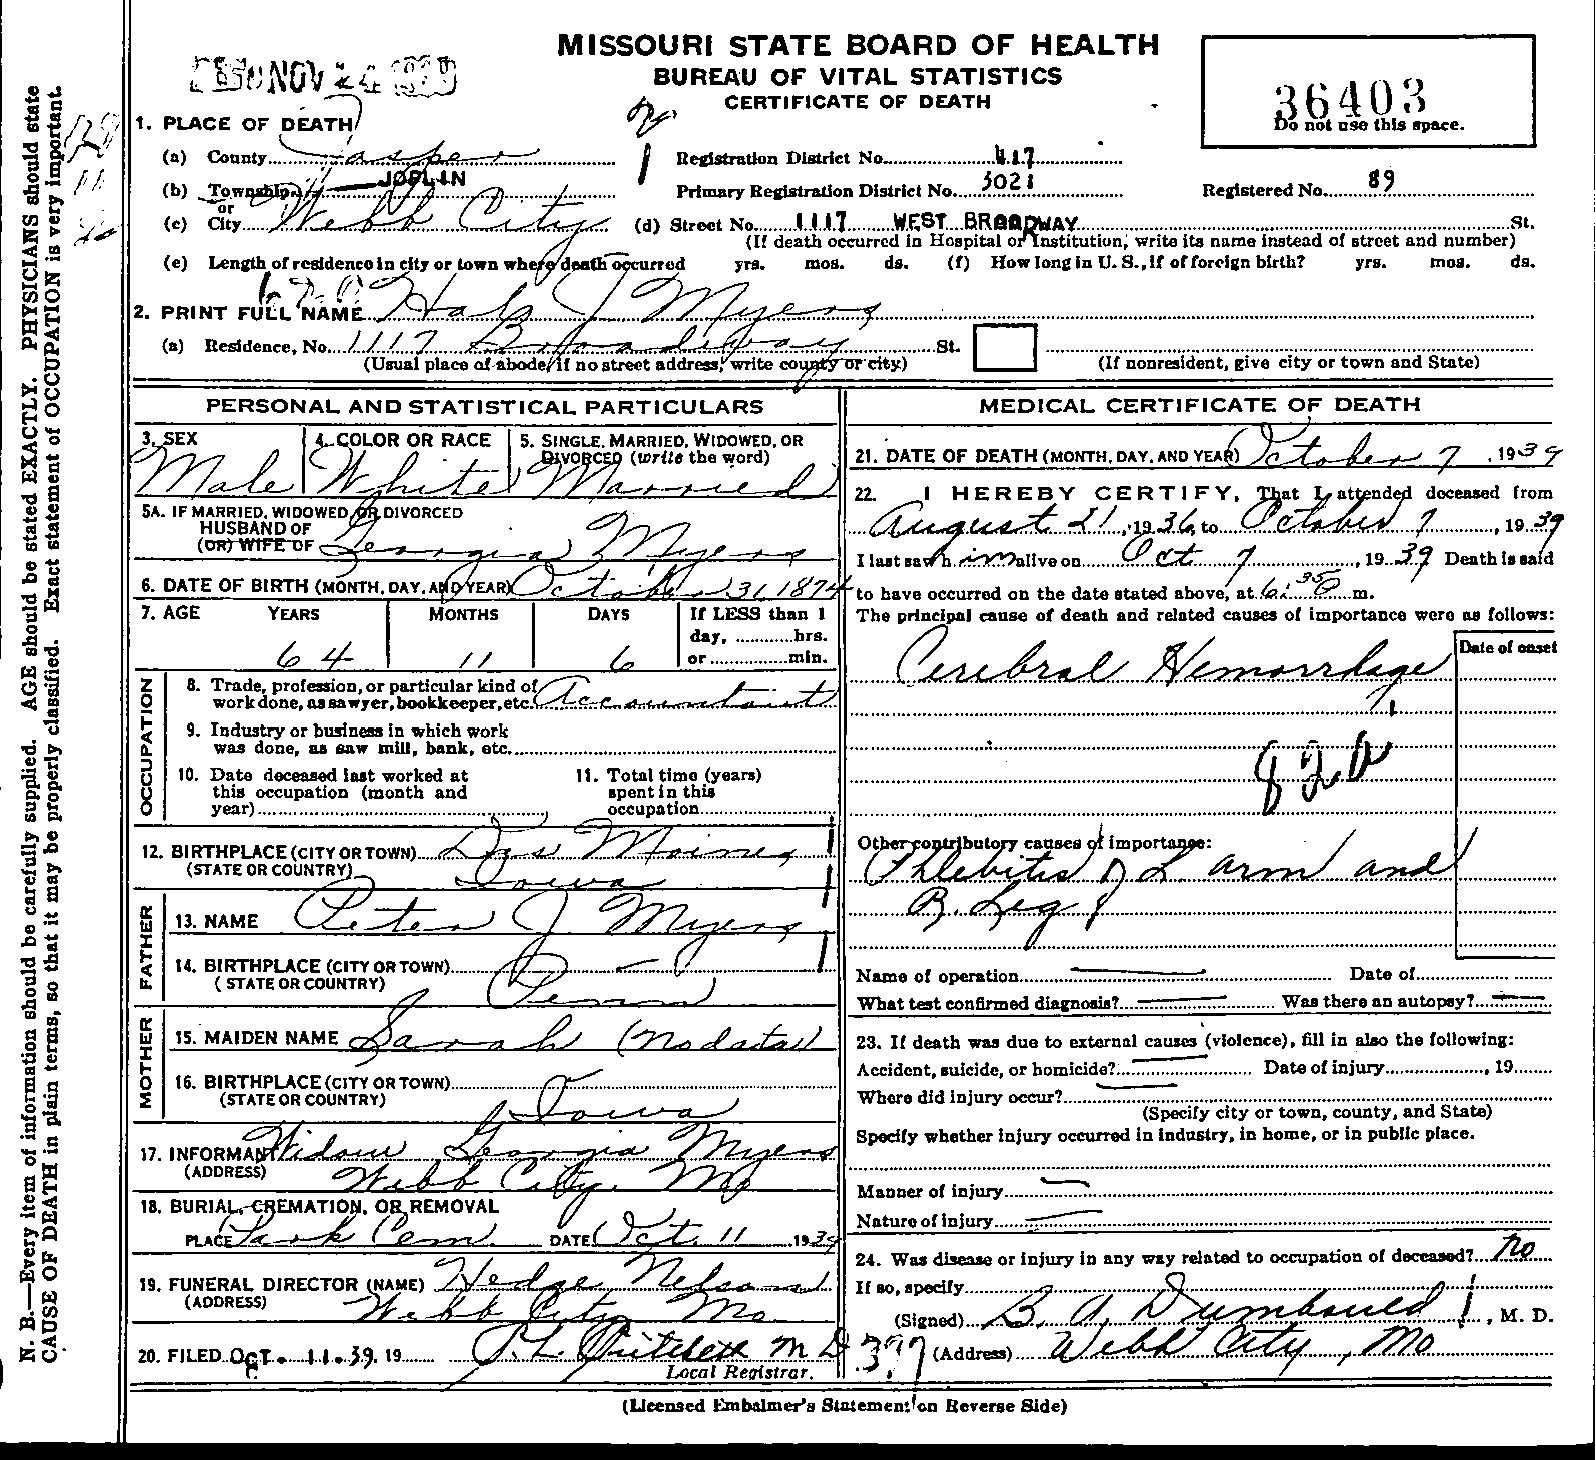 MISSOURI STATE BOARD OF HEALTH
BUREAU OF VITAL STATISTICS
CERTIFICATE OF DEATH
NOV 24
36403
Do not use this space.
1. PLACE OF DEATH
(a) County Jasper
(b) Township JOPLIN
or
(c) City Webb City
Registration District No. 417
Primary Registration District No. 3021
Registered No. 89
(d) Street No. 1117 WEST BROADWAY St.
(If death occurred in Hospital or Institution, write its name instead of street and number)
(e) Length of residence in city or town where death occurred yrs. mos. ds. (f) How long in U. S., if of foreign birth? yrs. mos. ds.
2. PRINT FULL NAME Hal J Myers
(a) Residence, No. 1117 Broadway St.
(Usual place of abode, if no street address, write county or city)
(If nonresident, give city or town and State)
PERSONAL AND STATISTICAL PARTICULARS
3. SEX
Male
4. COLOR OR RACE
White
5. SINGLE, MARRIED, WIDOWED, OR
DIVORCED (write the word)
Married
5A. IF MARRIED, WIDOWED, OR DIVORCED
HUSBAND OF
(OR) WIFE OF Georgia Myers
6. DATE OF BIRTH (MONTH, DAY, AND YEAR) October 31, 1874
7. AGE YEARS MONTHS DAYS If LESS than 1
day, hrs.
or min.
64 11 6
OCCUPATION
8. Trade, profession, or particular kind of
work done, as sawyer, bookkeeper, etc. Accountant
9. Industry or business in which work
was done, as saw mill, bank, etc.
10. Date deceased last worked at
this occupation (month and
year)
11. Total time (years)
spent in this
occupation
12. BIRTHPLACE (CITY OR TOWN) Des Moines
(STATE OR COUNTRY) Iowa
FATHER
13. NAME Peter J. Myers
14. BIRTHPLACE (CITY OR TOWN) —
(STATE OR COUNTRY) Penn
MOTHER
15. MAIDEN NAME Sarah (No data)
16. BIRTHPLACE (CITY OR TOWN)
(STATE OR COUNTRY) Iowa
17. INFORMANT Widow Georgia Myers
(ADDRESS) Webb City, Mo
18. BURIAL, CREMATION, OR REMOVAL
PLACE Park Cem. DATE Oct. 11, 1939
19. FUNERAL DIRECTOR (NAME) Hedge Nelson
(ADDRESS) Webb City, Mo.
20. FILED OCT. 11. 39. 19 M D
Local Registrar.
MEDICAL CERTIFICATE OF DEATH
21. DATE OF DEATH (MONTH, DAY, AND YEAR) October 7, 1939
22. I HEREBY CERTIFY, That I attended deceased from
August 21, 1936, to October 7, 1939
I last saw him alive on Oct 7, 1939 Death is said
to have occurred on the date stated above, at m.
The principal cause of death and related causes of importance were as follows:
Date of onset
Cerebral Hemorrhage
82a
Other contributory causes of importance:
Phlebitis of L arm and
R. Leg
Name of operation — Date of
What test confirmed diagnosis? — Was there an autopsy? —
23. If death was due to external causes (violence), fill in also the following:
Accident, suicide, or homicide? — Date of injury , 19
Where did injury occur? —
(Specify city or town, county, and State)
Specify whether injury occurred in industry, in home, or in public place.
Manner of injury —
Nature of injury —
24. Was disease or injury in any way related to occupation of deceased? no
If so, specify
(Signed) B. A. Dumbauld, M. D.
397 (Address) Webb City, Mo
(Licensed Embalmer's Statement on Reverse Side)
N. B.—Every item of information should be carefully supplied. AGE should be stated EXACTLY. PHYSICIANS should state
CAUSE OF DEATH in plain terms, so that it may be properly classified. Exact statement of OCCUPATION is very important.